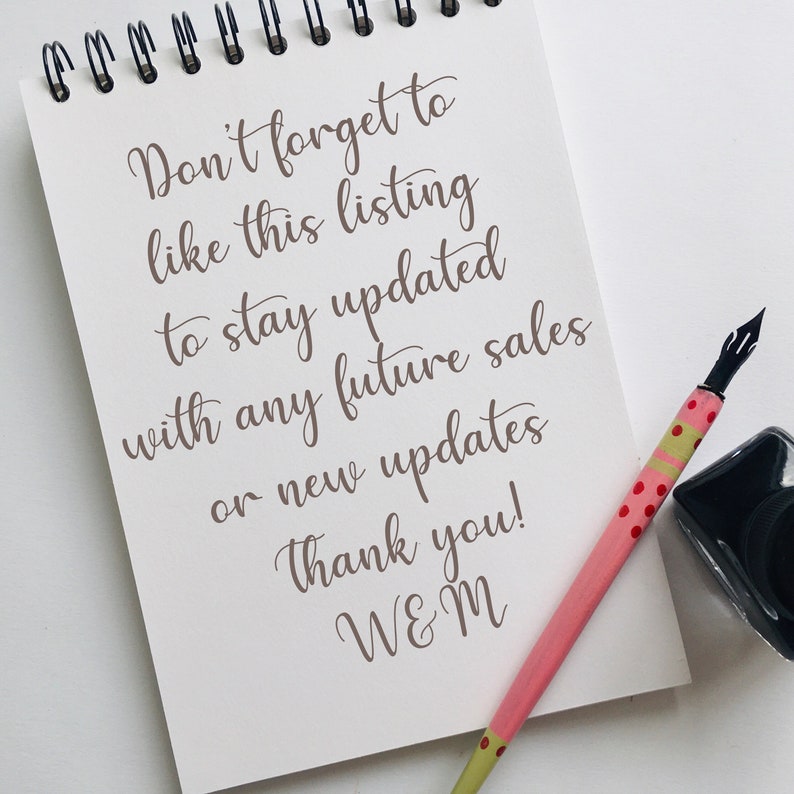 Don't forget to
like this listing
to stay updated
with any future sales
or new updates
thank you!
W&M